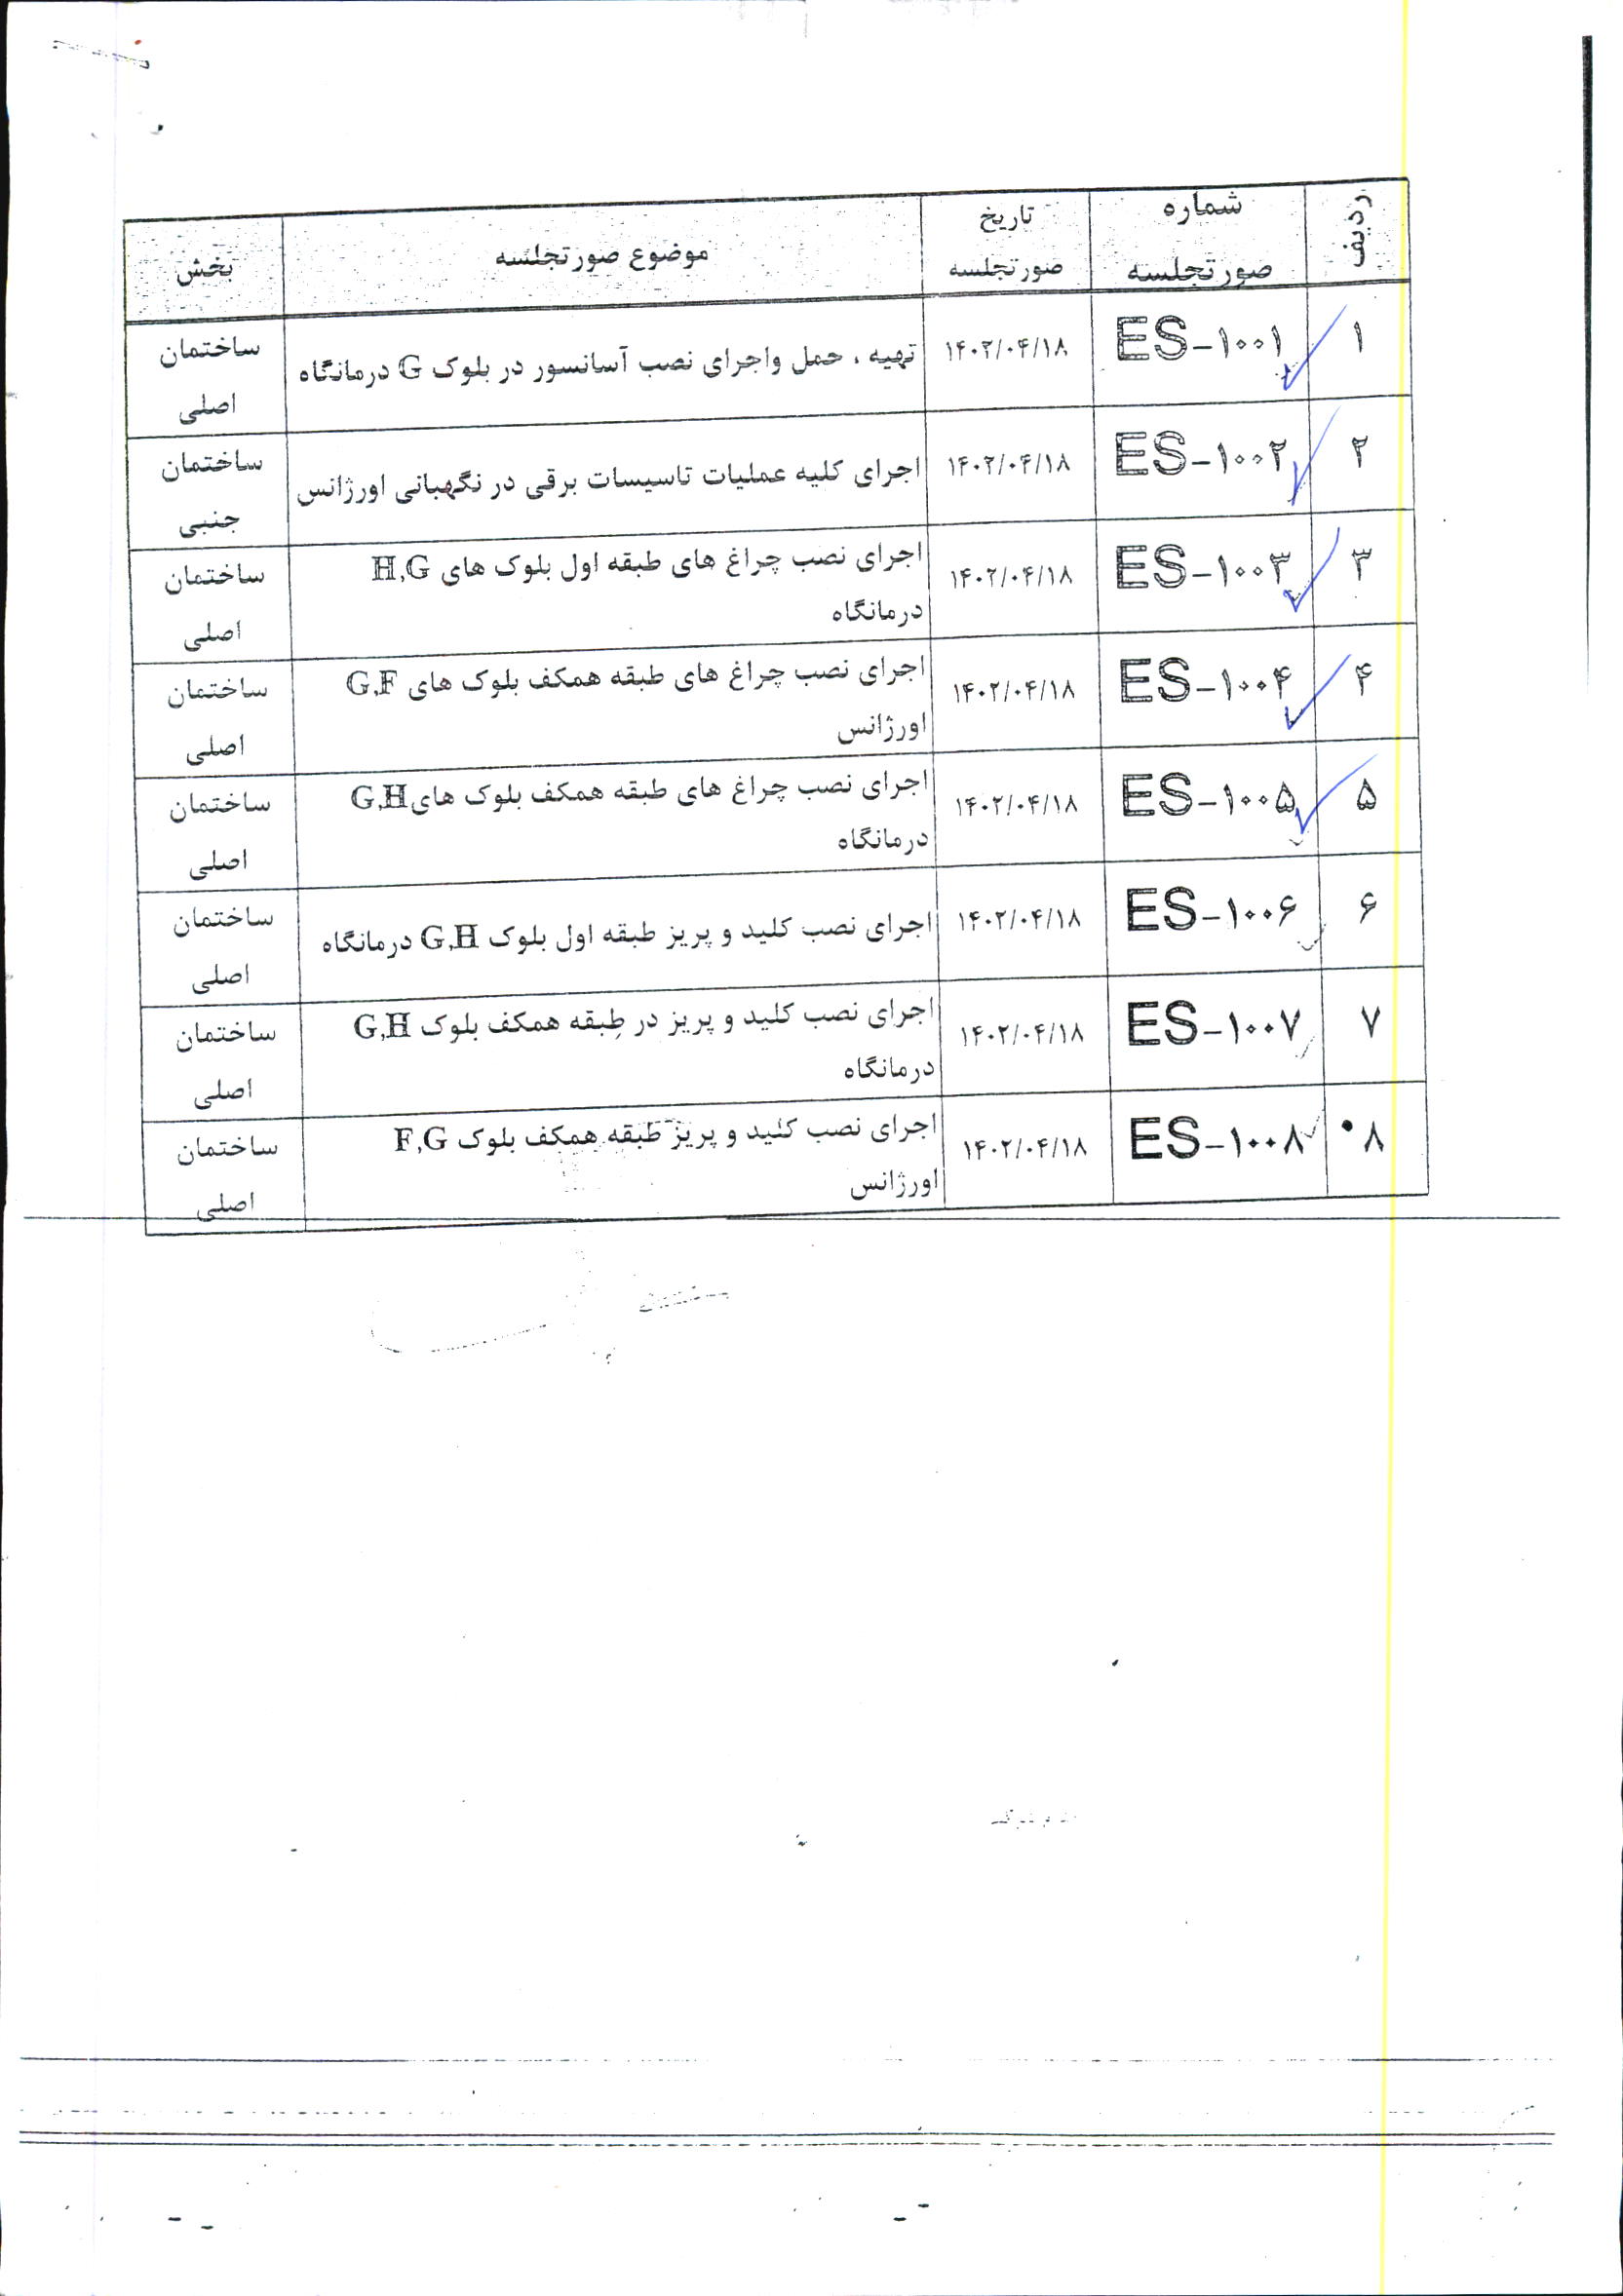 ردیف
شماره صورتجلسه
تاریخ صورتجلسه
موضوع صورتجلسه
بخش
۱ ES-۱۰۰۱ ۱۴۰۲/۰۴/۱۸ تهیه ، حمل واجرای نصب آسانسور در بلوک G درمانگاه ساختمان اصلی
۲ ES-۱۰۰۲ ۱۴۰۲/۰۴/۱۸ اجرای کلیه عملیات تاسیسات برقی در نگهبانی اورژانس ساختمان جنبی
۳ ES-۱۰۰۳ ۱۴۰۲/۰۴/۱۸ اجرای نصب چراغ های طبقه اول بلوک های H,G درمانگاه ساختمان اصلی
۴ ES-۱۰۰۴ ۱۴۰۲/۰۴/۱۸ اجرای نصب چراغ های طبقه همکف بلوک های G,F اورژانس ساختمان اصلی
۵ ES-۱۰۰۵ ۱۴۰۲/۰۴/۱۸ اجرای نصب چراغ های طبقه همکف بلوک های G,H درمانگاه ساختمان اصلی
۶ ES-۱۰۰۶ ۱۴۰۲/۰۴/۱۸ اجرای نصب کلید و پریز طبقه اول بلوک G,H درمانگاه ساختمان اصلی
۷ ES-۱۰۰۷ ۱۴۰۲/۰۴/۱۸ اجرای نصب کلید و پریز در طبقه همکف بلوک G,H درمانگاه ساختمان اصلی
۸ ES-۱۰۰۸ ۱۴۰۲/۰۴/۱۸ اجرای نصب کلید و پریز طبقه همکف بلوک F,G اورژانس ساختمان اصلی